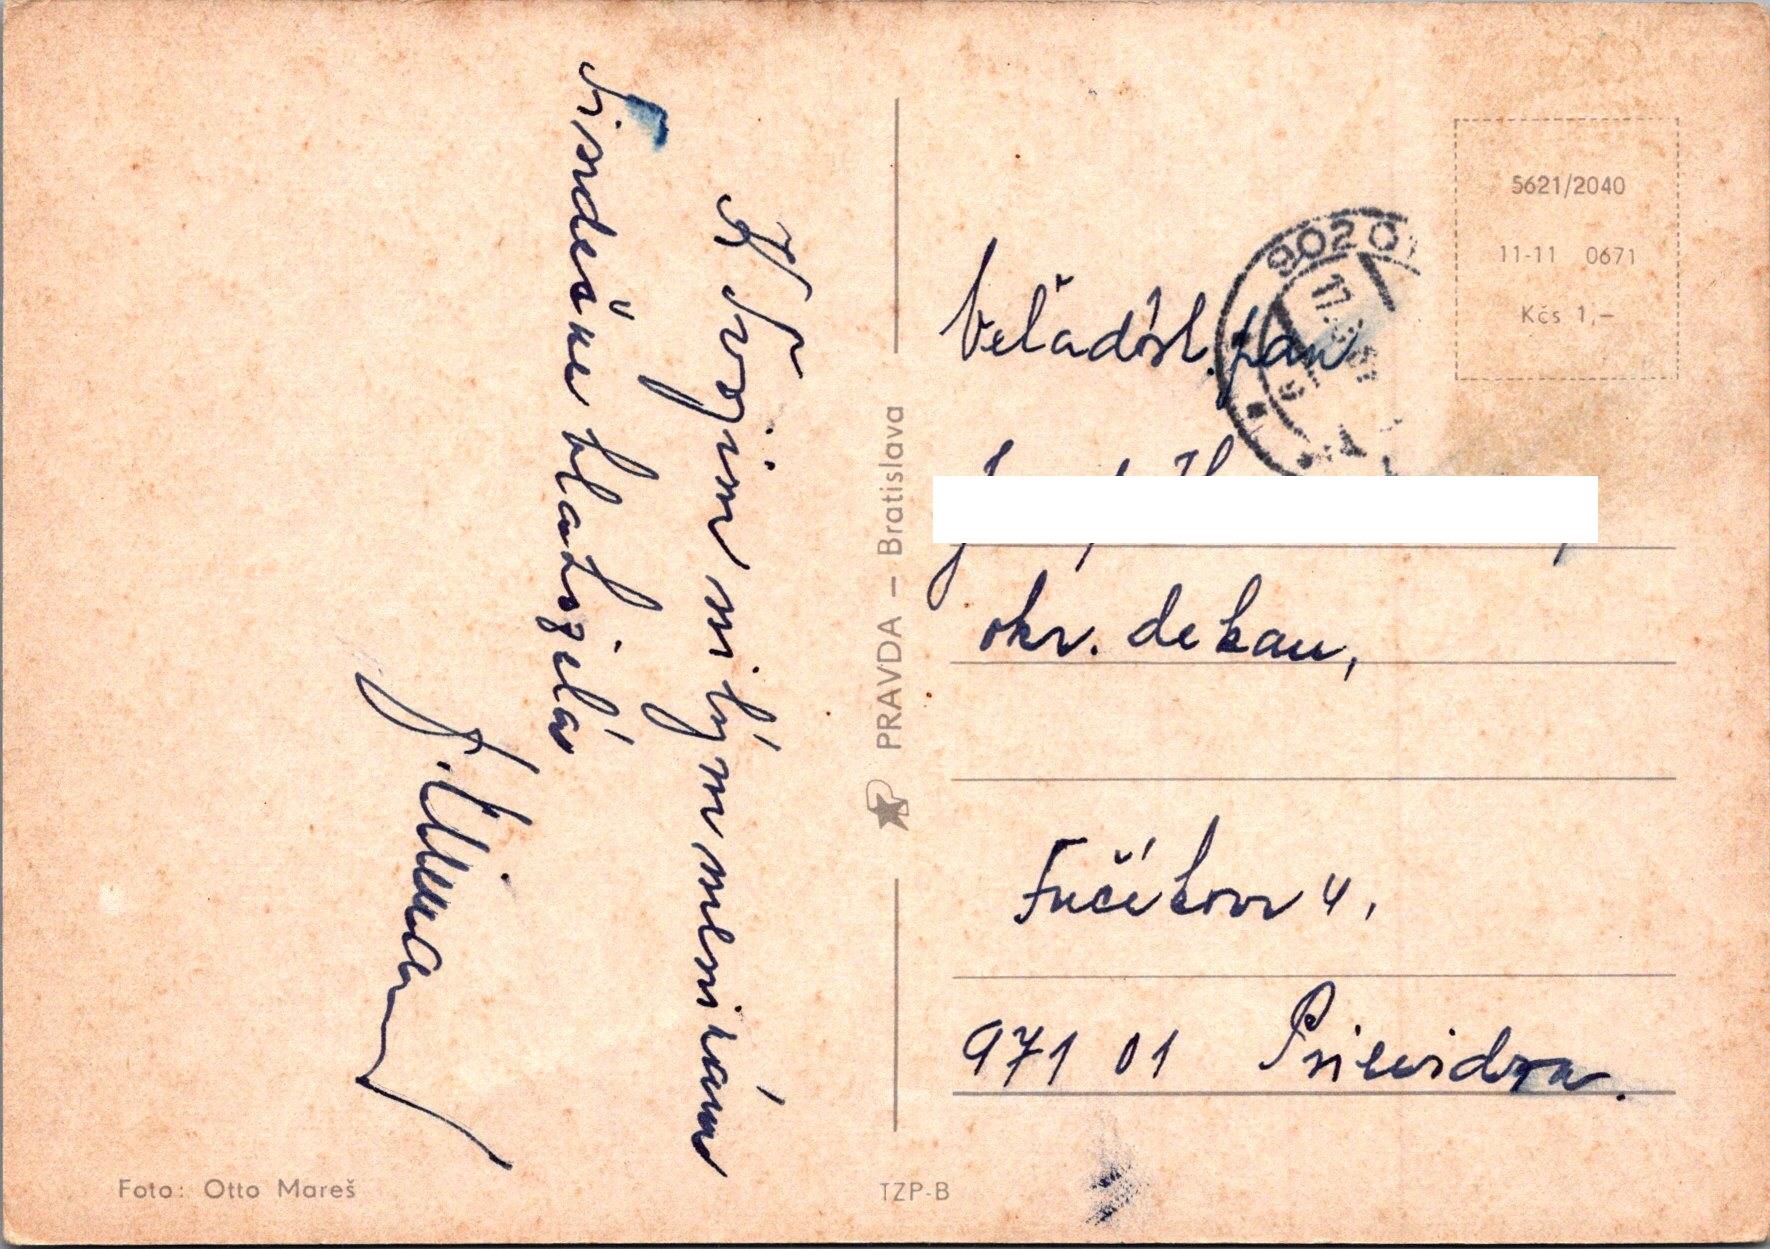 K Tvojim milým meninám
srdečne blahoželá
J. Uman
Veľadôst. pán
okr. dekan,
Fučíkova 4,
971 01 Prievidza.
PRAVDA – Bratislava
5621/2040
11-11 0671
Kčs 1,–
902 01
17.
Foto: Otto Mareš
TZP-B